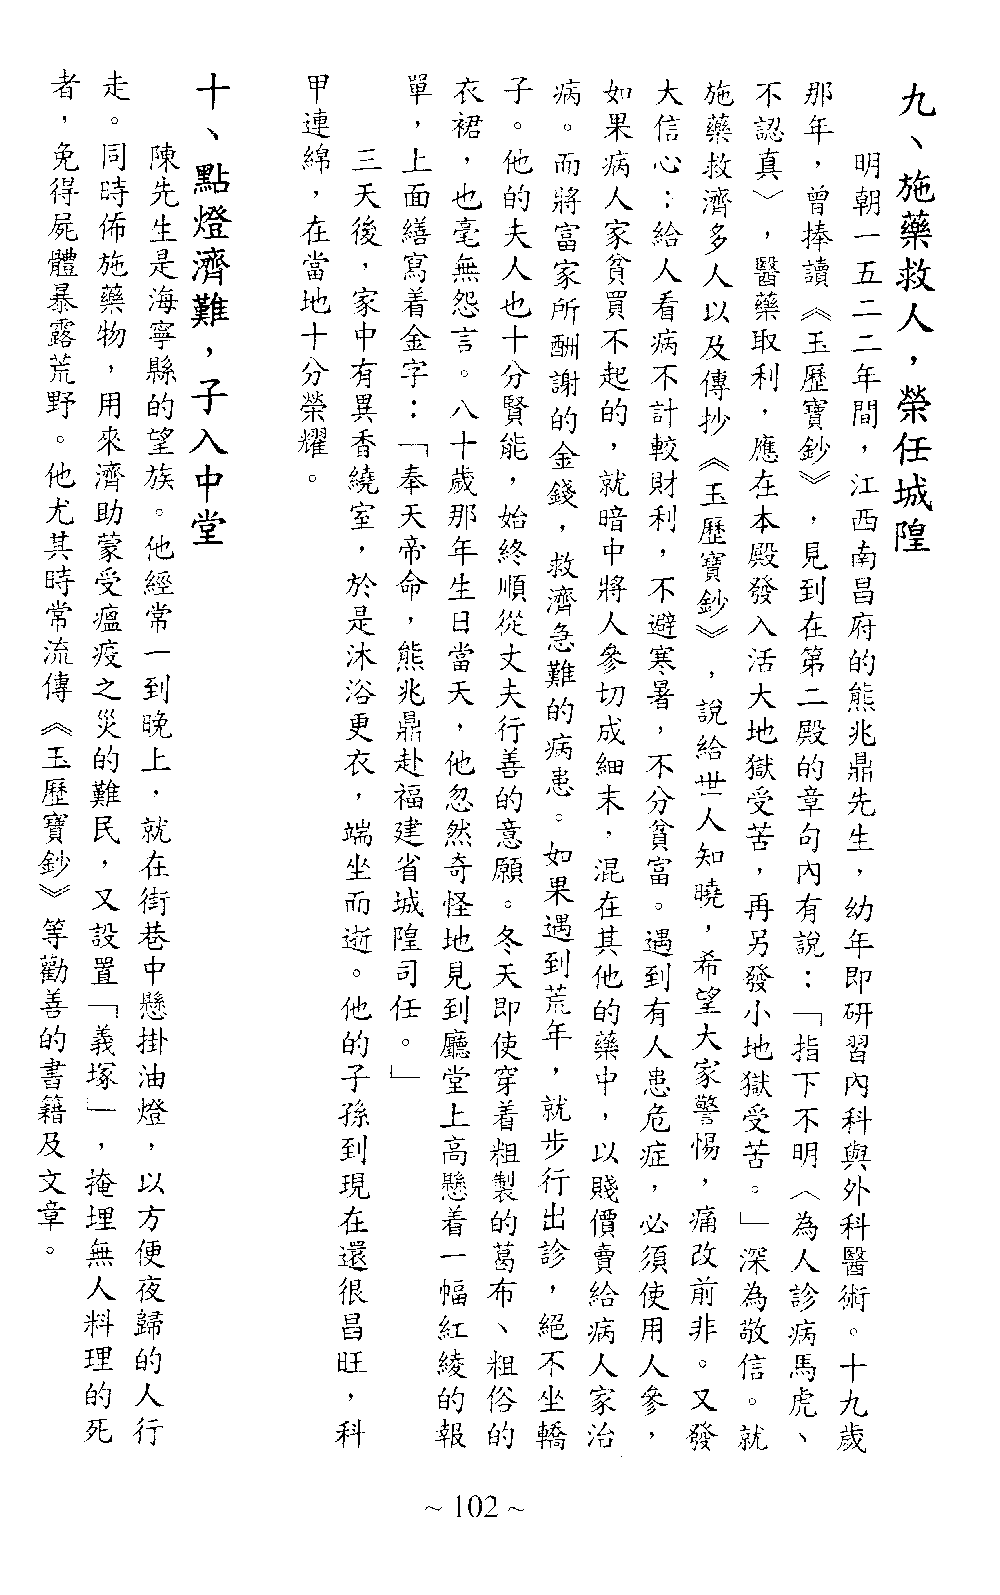 九、施藥救人，榮任城隍
明朝一五二二年間，江西南昌府的熊兆鼎先生，幼年即研習內科與外科醫術。十九歲
那年，曾捧讀《玉歷寶鈔》，見到在第二殿的章句內有說：「指下不明〈為人診病馬虎、
不認真〉，醫藥取利，應在本殿發入活大地獄受苦，再另發小地獄受苦。」深為敬信。就
施藥救濟多人以及傳抄《玉歷寶鈔》，說給世人知曉，希望大家警惕，痛改前非。又發
大信心：給人看病不計較財利，不避寒暑，不分貧富。遇到有人患危症，必須使用人參，
如果病人家貧買不起的，就暗中將人參切成細末，混在其他的藥中，以賤價賣給病人家治
病。而將富家所酬謝的金錢，救濟急難的病患。如果遇到荒年，就步行出診，絕不坐轎
子。他的夫人也十分賢能，始終順從丈夫行善的意願。冬天即使穿着粗製的葛布、粗俗的
衣裙，也毫無怨言。八十歲那年生日當天，他忽然奇怪地見到廳堂上高懸着一幅紅綾的報
單，上面繕寫着金字：「奉天帝命，熊兆鼎赴福建省城隍司任。」
三天後，家中有異香繞室，於是沐浴更衣，端坐而逝。他的子孫到現在還很昌旺，科
甲連綿，在當地十分榮耀。
十、點燈濟難，子入中堂
陳先生是海寧縣的望族。他經常一到晚上，就在街巷中懸掛油燈，以方便夜歸的人行
走。同時佈施藥物，用來濟助蒙受瘟疫之災的難民，又設置「義塚」，掩埋無人料理的死
者，免得屍體暴露荒野。他尤其時常流傳《玉歷寶鈔》等勸善的書籍及文章。
~ 102 ~